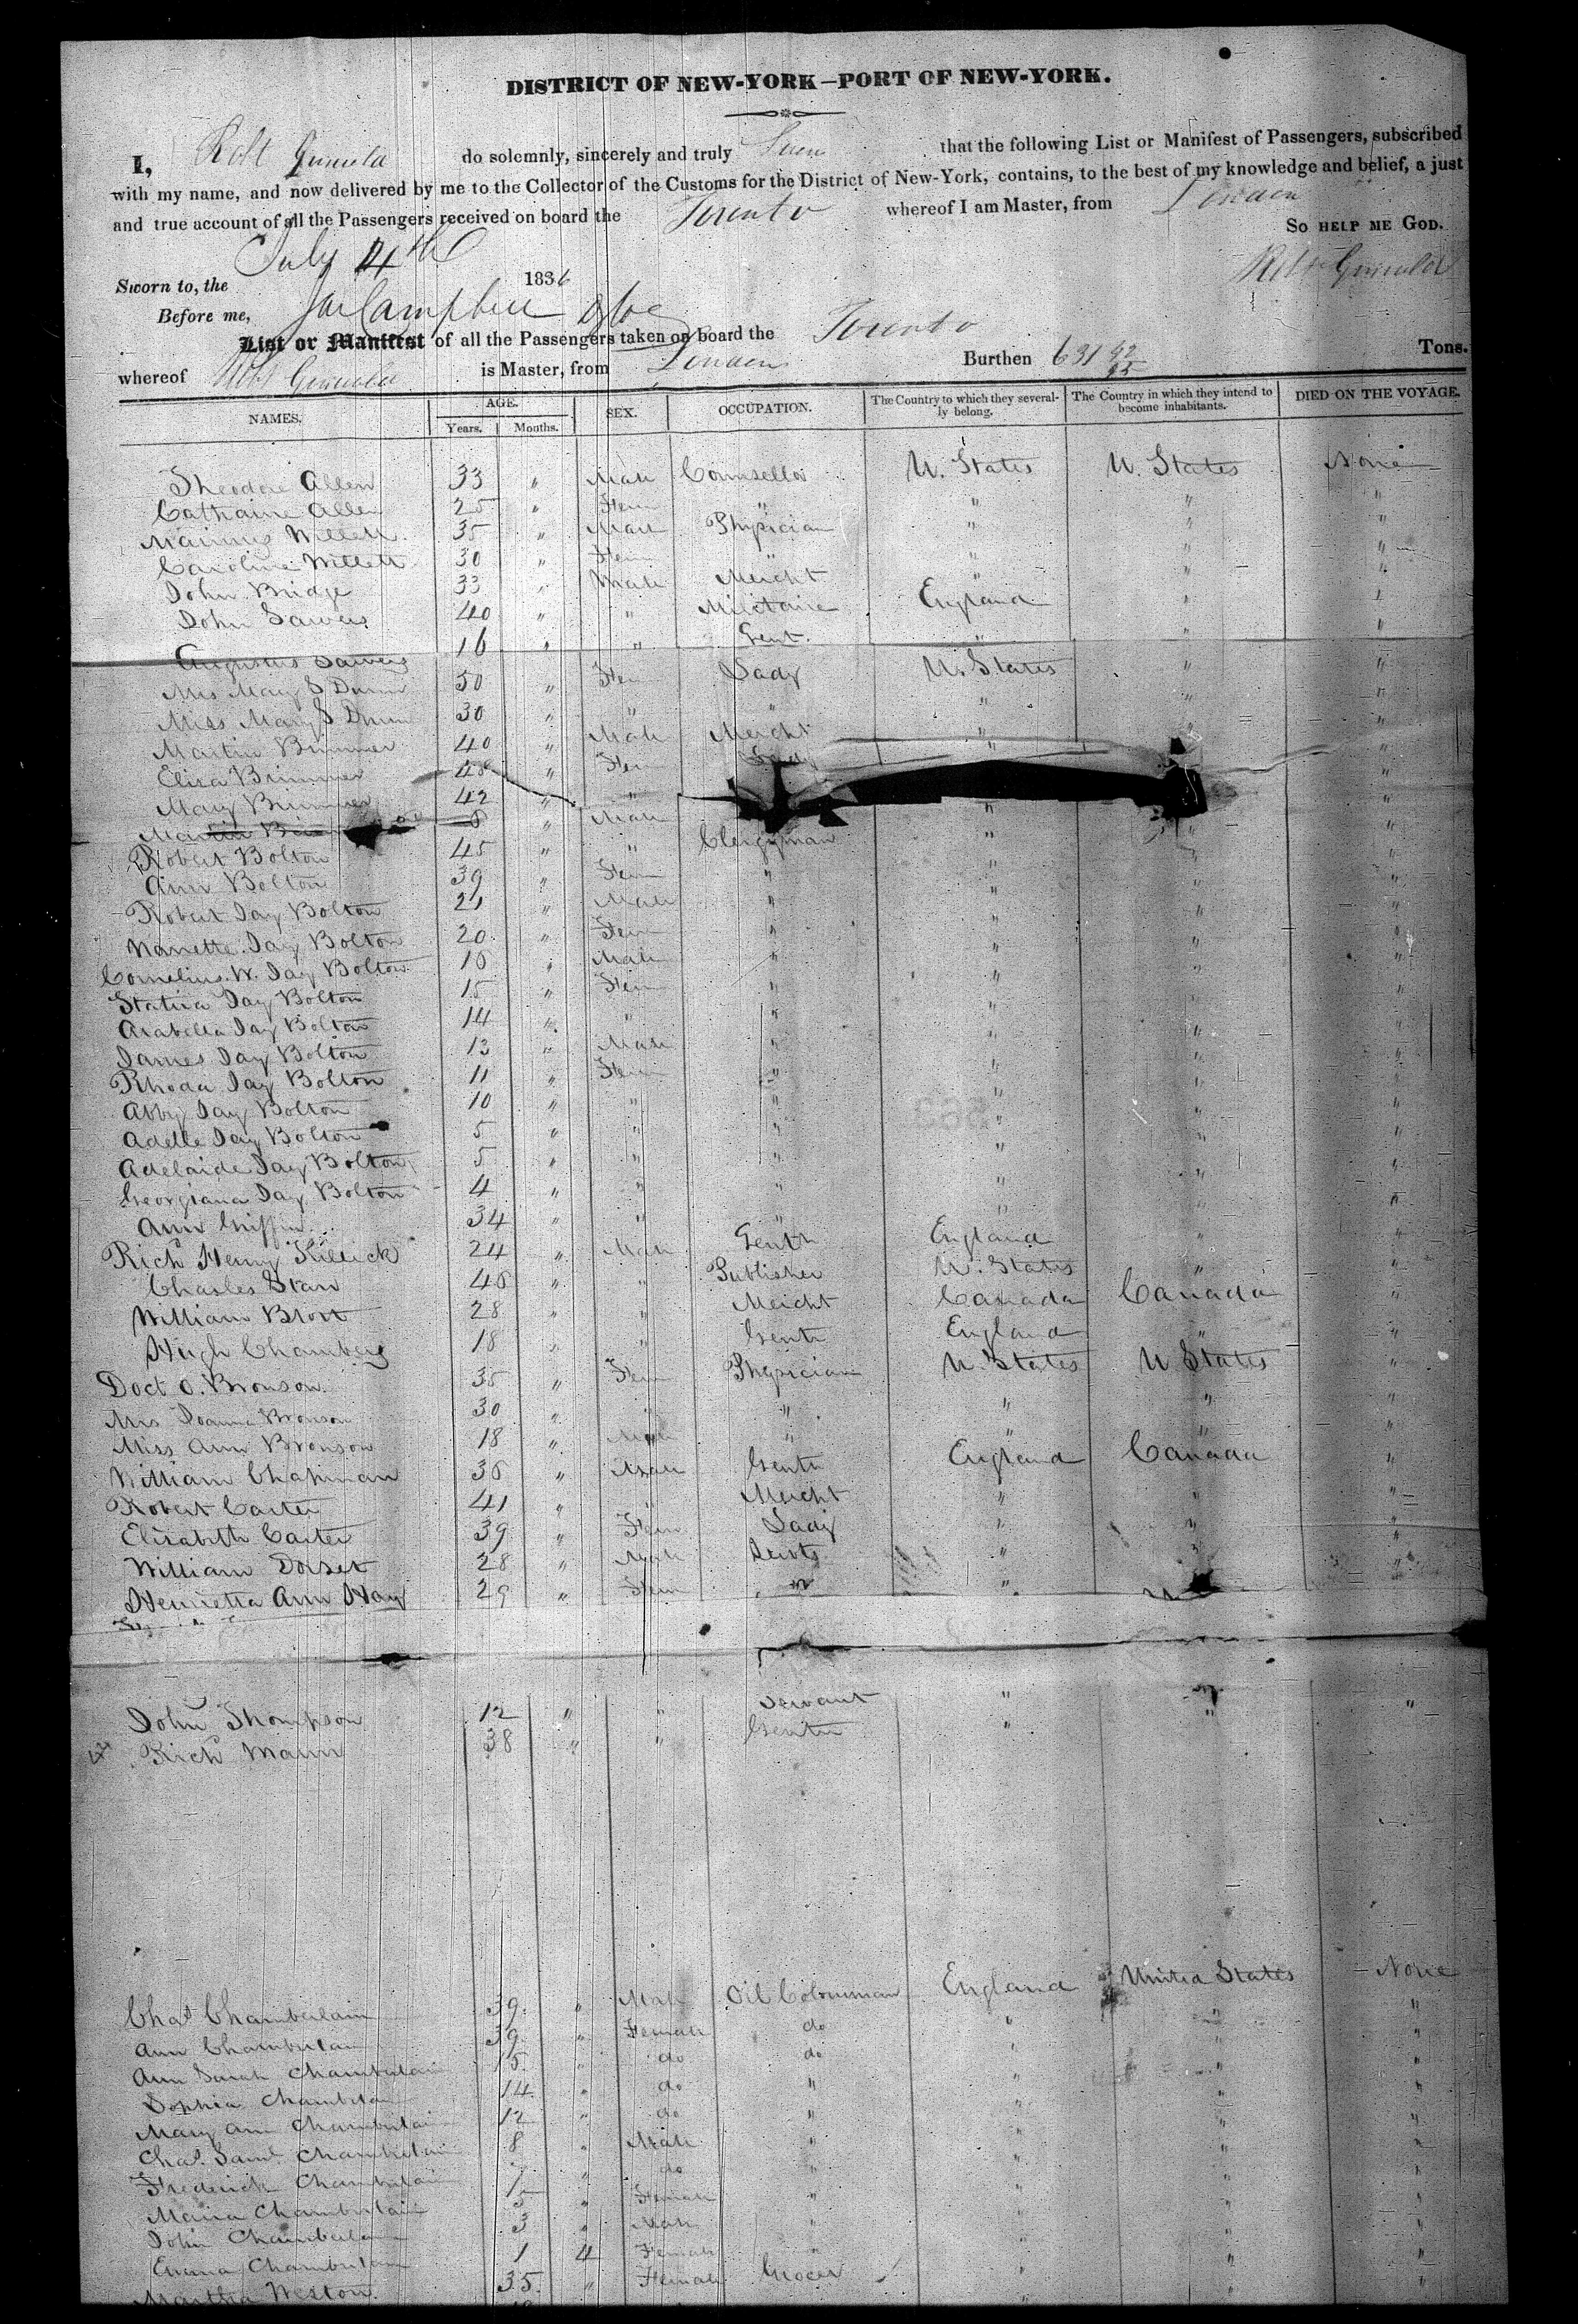 DISTRICT OF NEW-YORK—PORT OF NEW-YORK.
I, Robt Griswold do solemnly, sincerely and truly Swear that the following List or Manifest of Passengers, subscribed
with my name, and now delivered by me to the Collector of the Customs for the District of New-York, contains, to the best of my knowledge and belief, a just
and true account of all the Passengers received on board the Toronto whereof I am Master, from London
So HELP ME GOD.
Sworn to, the July 14th 1836 Robt Griswold
Before me, Campbell
List or Manifest of all the Passengers taken on board the Toronto
whereof Robt Griswold is Master, from London Burthen 631 92/95 Tons.
NAMES. AGE. Years. Months. SEX. OCCUPATION. The Country to which they severally belong. The Country in which they intend to become inhabitants. DIED ON THE VOYAGE.
Theodore Allen 33 " Male Counsellor U. States U. States None
Catharine Allen 25 " Fem " " " "
Willett 35 " Male Physician " " "
Caroline Willett 30 " Fem " " " "
John Bridge 33 " Male Mercht " " "
John Sawers 40 " " Militaire England " "
Augustus Sawers 16 " " Gent. " " "
Mrs Mary S Dunn 50 " Fem Lady U. States " "
Miss Mary S Dunn 30 " " " " " "
Martin Brimmer 40 " Male Mercht " " "
Eliza Brimmer 48 " Fem Lady "
Mary Brimmer 42 " " "
Martin 8 " Male " "
Robert Bolton 45 " " Clergyman " " "
Ann Bolton 39 " Fem " " " "
Robert Jay Bolton 21 " Male " " " "
Nanette Jay Bolton 20 " Fem " " " "
Cornelius W. Jay Bolton 16 " Male " " " "
Statira Jay Bolton 15 " Fem " " " "
Arabella Jay Bolton 14 " " " " " "
James Jay Bolton 12 " Male " " " "
Rhoda Jay Bolton 11 " Fem " " " "
Abby Jay Bolton 10 " " " " " "
Adelle Jay Bolton 5 " " " " " "
Adelaide Jay Bolton 5 " " " " " "
Georgiana Jay Bolton 4 " " " " " "
Ann Griffin 34 " " " " " "
Rich Henry Killick 24 " Male Gentn England " "
Charles Starr 46 " " Publisher U. States " "
William 28 " " Mercht Canada Canada "
Hugh Chambers 18 " " Gentn England " "
Doct O. Bronson 35 " Fem Physician U. States U States "
Mrs Joanna Bronson 30 " " " " " "
Miss Ann Bronson 18 " Male " " " "
William Chapman 36 " Male Gentn England Canada "
Robert Carter 41 " " Mercht " " "
Elizabeth Carter 39 " Fem Lady " " "
William Dorset 28 " Male Servts " "
Henrietta Ann Hay 29 " Fem " "
John Thompson 12 " " Servant " " "
Rich Mann 38 " " Gentn " "
Chas Chamberlain 39 " Male Oil Colourman England United States None
Ann Chamberlain 39 " Female do " " "
Ann Sarah Chamberlain 15 " do do " "
Sophia Chamberlain 14 " do " " " "
Mary Ann Chamberlain 12 " do " " " "
Chas Saml Chamberlain 8 " Male " " " "
Frederick Chamberlain 7 " do " " " "
Maria Chamberlain 5 " Female " " " "
John Chamberlain 3 " Male " " " "
Emma Chamberlain 1 4 Female " " " "
Martha Weston 35 " Female Grocer " " "